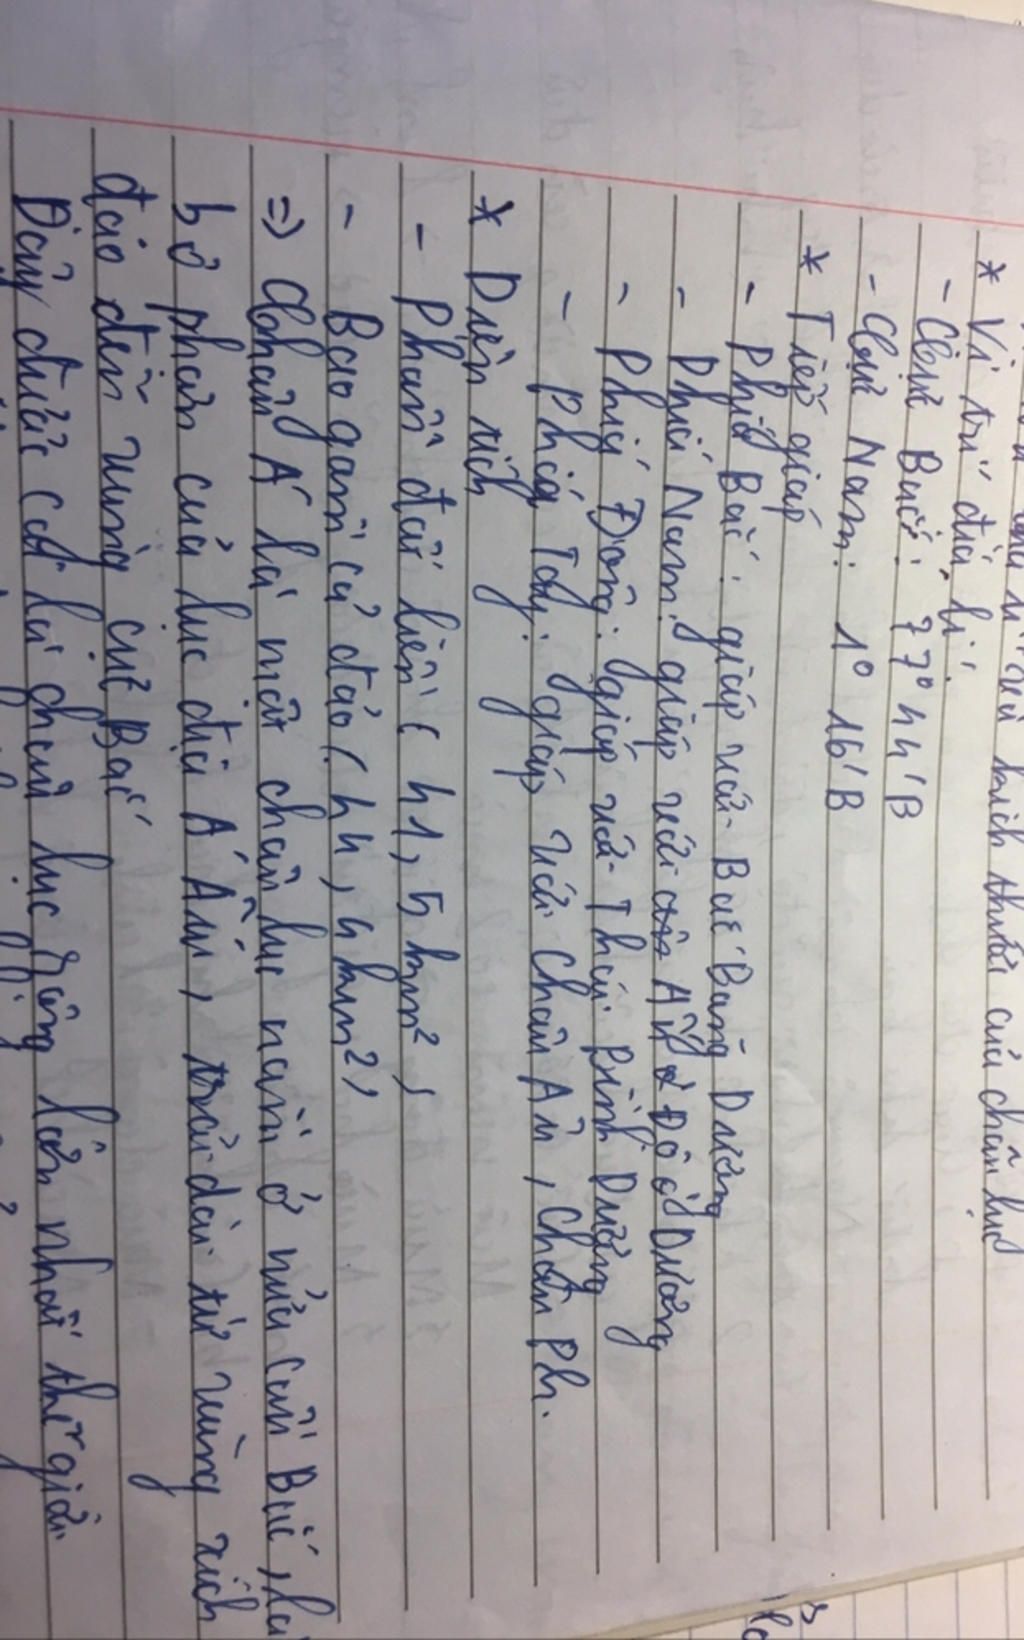 kích thước của châu lục
* Vị trí địa lí:
- Cực Bắc: 77° 44'B
- Cực Nam: 1° 16'B
* Tiếp giáp
- Phía Bắc: giáp với Bắc Băng Dương
- Phía Nam: giáp với Ấn Độ Dương
- Phía Đông: giáp với Thái Bình Dương
- Phía Tây: giáp với Châu Âu, Châu Phi.
* Diện tích
- Phần đất liền: 41,5 km²,
- Bao gồm cả đảo (44,4 km²,
=> Châu Á là một châu lục nằm ở nửa cầu Bắc, là
bộ phận của lục địa Á Âu, trải dài từ vùng xích
đạo đến vùng cực Bắc
Đây được coi là châu lục rộng lớn nhất thế giới